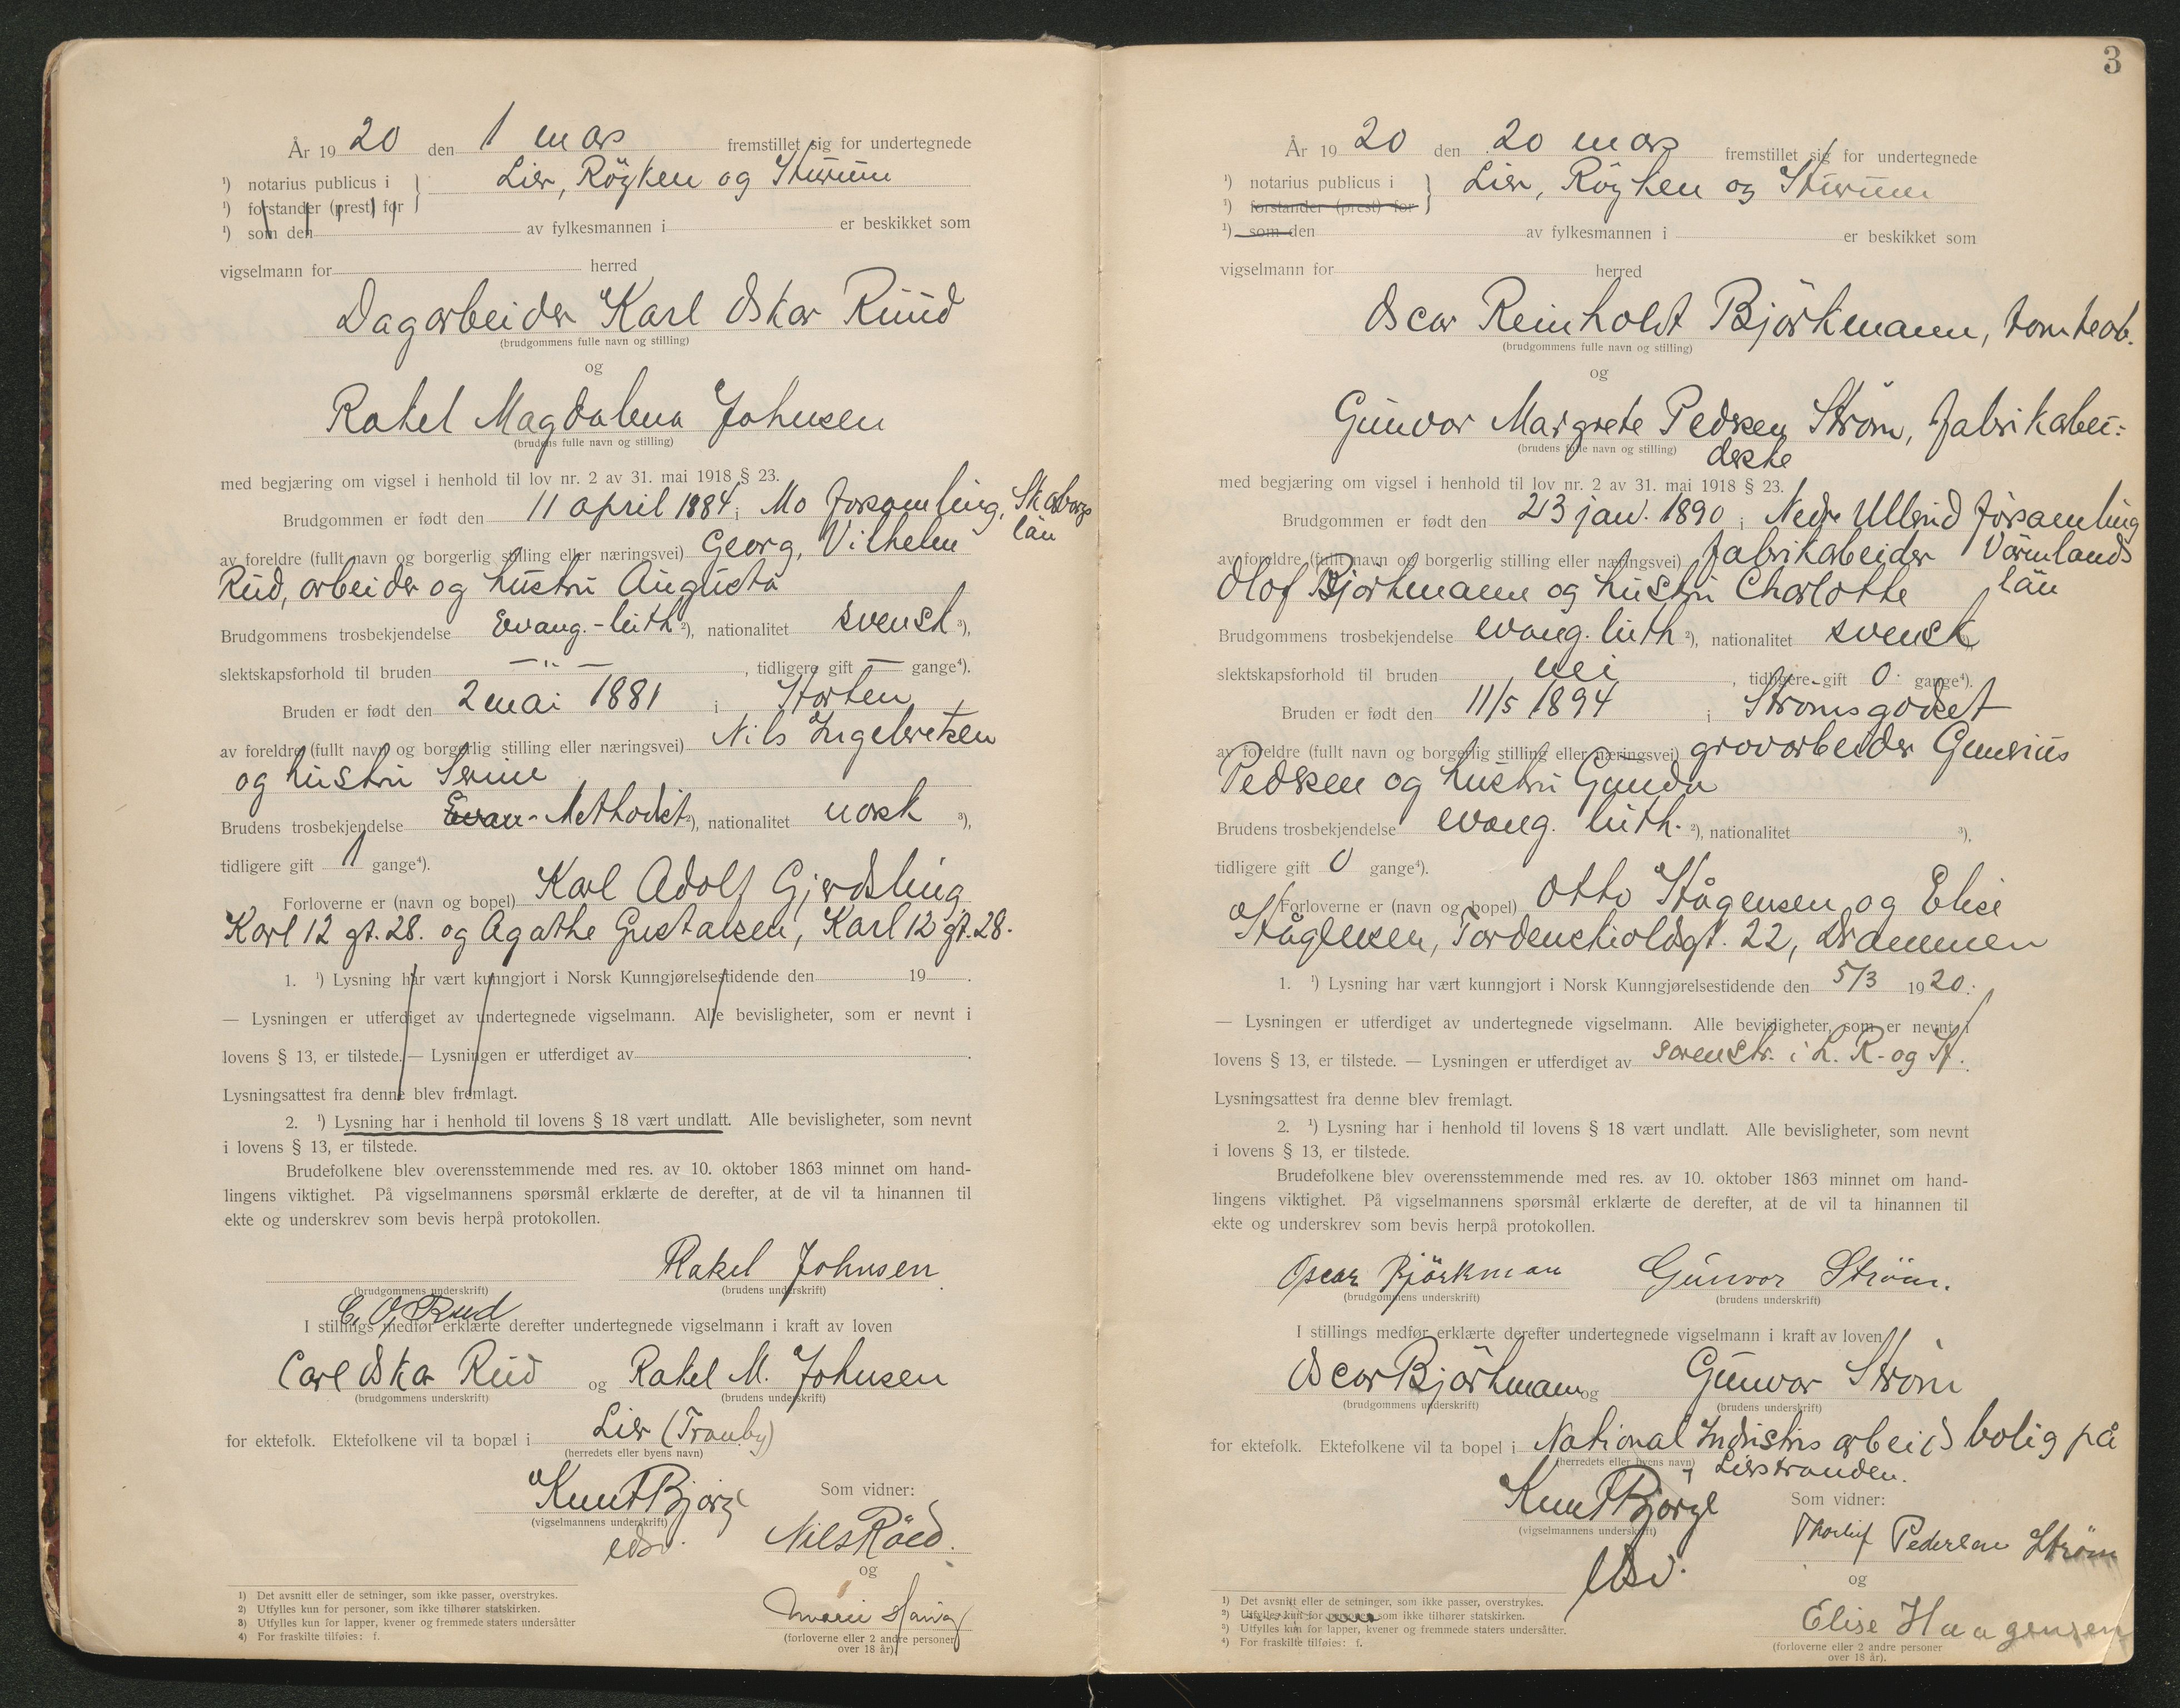 År 1920 den 1 mars fremstillet sig for undertegnede
¹) notarius publicus i } Lier, Röyken og Hurum
¹) forstander (prest) for
¹) som den av fylkesmannen i er beskikket som
vigselmann for herred
Dagarbeider Karl Oskar Ruud
(brudgommens fulle navn og stilling)
og
Rakel Magdalena Johnsen
(brudens fulle navn og stilling)
med begjæring om vigsel i henhold til lov nr. 2 av 31. mai 1918 § 23.
Brudgommen er født den 11 april 1884 i Mo forsamling, Skaborgs
län
av foreldre (fullt navn og borgerlig stilling eller næringsvei) Georg, Vilhelm
Rud, arbeider og hustru Augusta
Brudgommens trosbekjendelse Evang.-luth ²), nationalitet svensk ³),
slektskapsforhold til bruden — " —, tidligere gift — gange⁴).
Bruden er født den 2 mai 1881 i Horten
av foreldre (fullt navn og borgerlig stilling eller næringsvei) Nils Ingebretsen
og hustru Serine
Brudens trosbekjendelse Evan- Methodist ²), nationalitet norsk ³),
tidligere gift 1 gange⁴).
Forloverne er (navn og bopel) Karl Adolf Gjerdsling
Karl 12 gt. 28. og Agathe Gustavsen, Karl 12 gt. 28.
1. ¹) Lysning har vært kunngjort i Norsk Kunngjørelsestidende den 19 .
— Lysningen er utferdiget av undertegnede vigselmann. Alle bevisligheter, som er nevnt i
lovens § 13, er tilstede. — Lysningen er utferdiget av .
Lysningsattest fra denne blev fremlagt.
2. ¹) Lysning har i henhold til lovens § 18 vært undlatt. Alle bevisligheter, som nevnt
i lovens § 13, er tilstede.
Brudefolkene blev overensstemmende med res. av 10. oktober 1863 minnet om hand-
lingens viktighet. På vigselmannens spørsmål erklærte de derefter, at de vil ta hinannen til
ekte og underskrev som bevis herpå protokollen.
Rakel Johnsen
(brudgommens underskrift) (brudens underskrift)
C. O. Rud
I stillings medfør erklærte derefter undertegnede vigselmann i kraft av loven
Carl Oskar Rud og Rakel M. Johnsen
(brudgommens underskrift) (brudens underskrift)
for ektefolk. Ektefolkene vil ta bopæl i Lier (Tranby)
(herredets eller byens navn)
Knut Bjorge
Som vidner:
(vigselmannens underskrift)
edsv.
Nils Röed.
og
Marie Hauag
(forloverne eller 2 andre personer
over 18 år).
1) Det avsnitt eller de setninger, som ikke passer, overstrykes.
2) Utfylles kun for personer, som ikke tilhører statskirken.
3) Utfylles kun for lapper, kvener og fremmede staters undersåtter
4) For fraskilte tilføies: f.
3
År 1920 den 20 mars fremstillet sig for undertegnede
¹) notarius publicus i } Lier, Röyken og Hurum
¹) forstander (prest) for
¹) som den av fylkesmannen i er beskikket som
vigselmann for herred
Oscar Reinholdt Björkmann, tomtearb.
(brudgommens fulle navn og stilling)
og
Gunvor Margrete Pedersen Ström, fabrikarbei-
(brudens fulle navn og stilling) derske
med begjæring om vigsel i henhold til lov nr. 2 av 31. mai 1918 § 23.
Brudgommen er født den 23 jan. 1890 i Nedre Ullerud församling
av foreldre (fullt navn og borgerlig stilling eller næringsvei) fabrikarbeider Värmlands
län
Olof Björkmann og hustru Charlotte
Brudgommens trosbekjendelse evang. luth ²), nationalitet svensk
slektskapsforhold til bruden nei, tidligere gift 0 gange⁴).
Bruden er født den 11/5 1894 i Strömsgodset
av foreldre (fullt navn og borgerlig stilling eller næringsvei) grovarbeider Gunerius
Pedersen og hustru Gunda
Brudens trosbekjendelse evang. luth. ²), nationalitet ³),
tidligere gift 0 gange⁴).
Forloverne er (navn og bopel) Otto Hågensen og Elise
Hågensen, Tordenskioldsgt. 22, Drammen
1. ¹) Lysning har vært kunngjort i Norsk Kunngjørelsestidende den 5/3 1920.
— Lysningen er utferdiget av undertegnede vigselmann. Alle bevisligheter, som er nevnt i
lovens § 13, er tilstede. — Lysningen er utferdiget av sorenskr. i L. R. og H.
Lysningsattest fra denne blev fremlagt.
2. ¹) Lysning har i henhold til lovens § 18 vært undlatt. Alle bevisligheter, som nevnt
i lovens § 13, er tilstede.
Brudefolkene blev overensstemmende med res. av 10. oktober 1863 minnet om hand-
lingens viktighet. På vigselmannens spørsmål erklærte de derefter, at de vil ta hinannen til
ekte og underskrev som bevis herpå protokollen.
Oscar Björkman Gunvor Strøm.
(brudgommens underskrift) (brudens underskrift)
I stillings medfør erklærte derefter undertegnede vigselmann i kraft av loven
Oscar Björkmann og Gunvor Ström
(brudgommens underskrift) (brudens underskrift)
for ektefolk. Ektefolkene vil ta bopel i National Industris arbeid bolig på
(herredets eller byens navn) Lierstranden.
Knut Bjorge
Som vidner:
(vigselmannens underskrift)
edsv.
Thorleif Pedersen Strøm
og
Elise Haagensen
(forloverne eller 2 andre personer
over 18 år).
1) Det avsnitt eller de setninger, som ikke passer, overstrykes.
2) Utfylles kun for personer som ikke tilhører statskirken.
3) Utfylles kun for lapper, kvener og fremmede staters undersåtter.
4) For fraskilte tilføies: f.